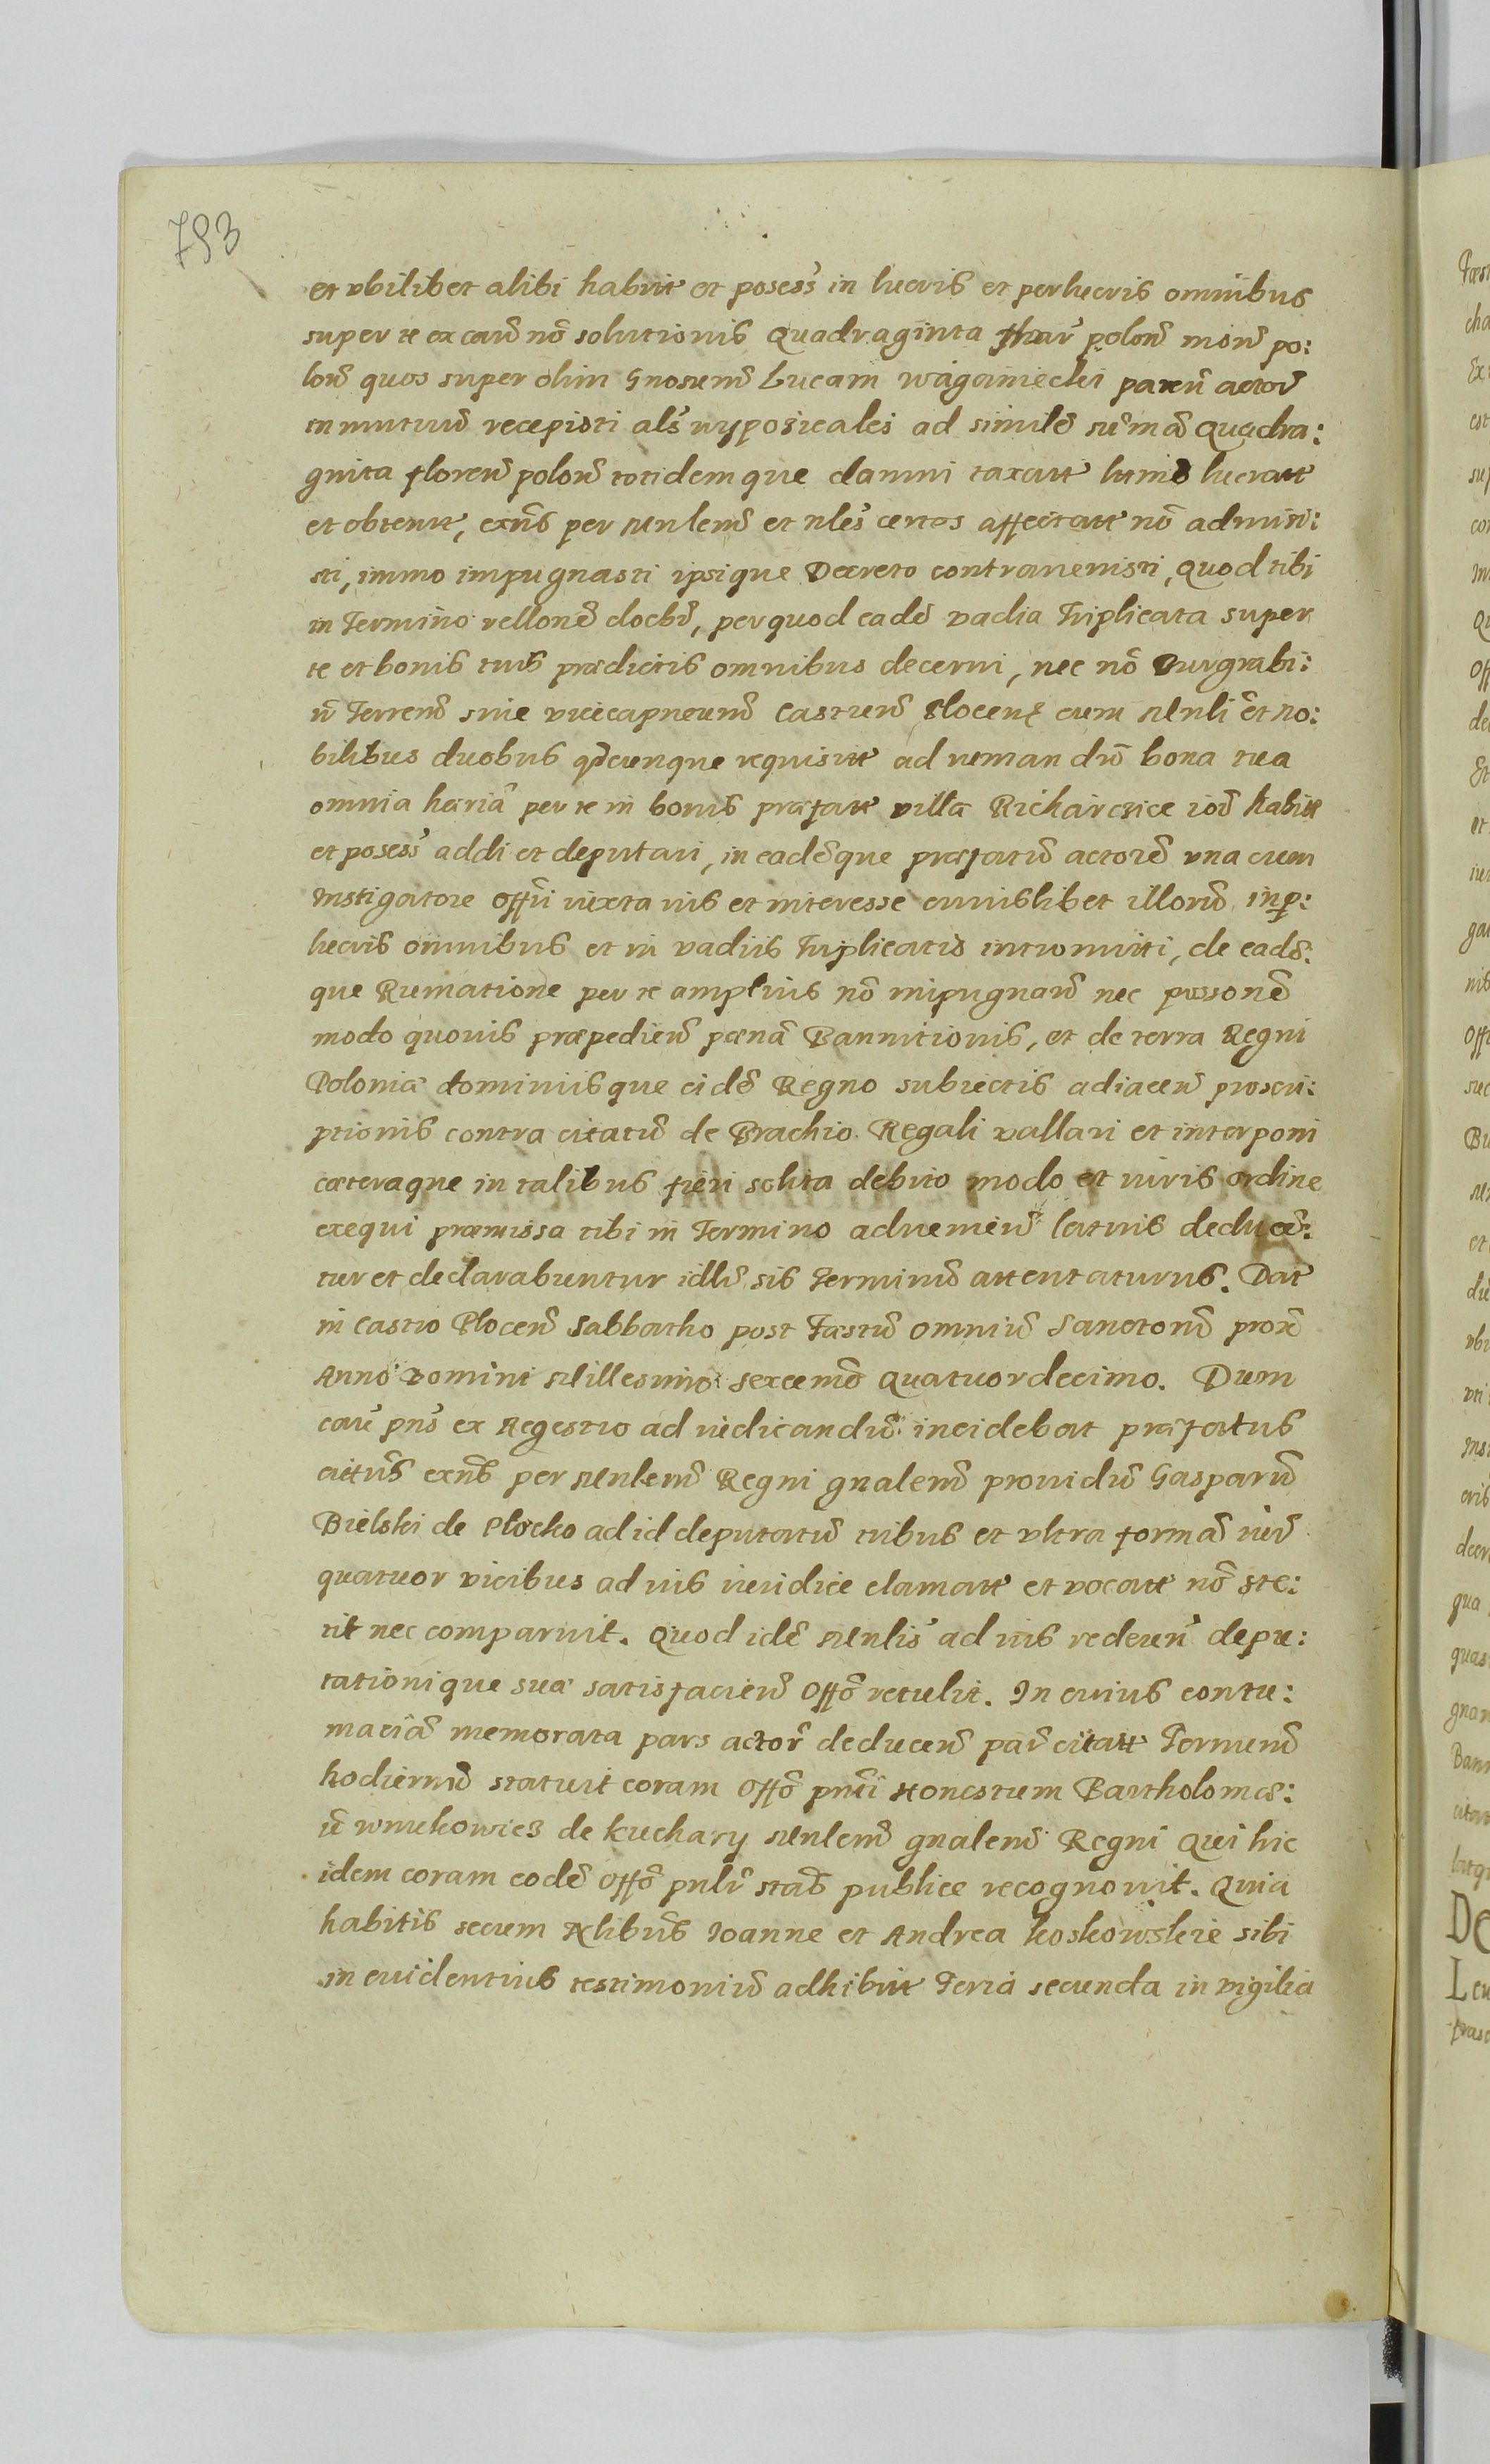 793
et vbilibet alibi habitt et posess in lucris et perlucris omnibus
super te ex cau nõ solutionis Quadraginta polon mon po:
lon quos super olim Gnosum Lucam paren actor
in mutuũ recepisti als wyposicales ad similẽ sũmã Quadra:
ginta floren polon totidemque damni taxatt lucratt
et obtent, exñs per Mnlem et nles certos affectatt nõ admisi:
sti, immo impugnasti ipsique Decreto contrauenisti, Quod tibi
in Termino rellone docbr, per quod eadẽ vadia Triplicata super
te et bonis tuis prædictis omnibus decerni, nec nõ Burgrabi:
ũ Terrenũ siue vicecapneum Castren Plocen cum Mnli et No:
bilibus duobus qdcunque requisitt ad rumandũ bona tua
omnia hæriã per te in bonis præfatt villa Richarcice ibid habitt
et posess addi et deputari, in eadẽque præfatũ actorẽ vna cum
Instigatore Offii iuxta ius et interesse cuiuslibet illorũ in per:
lucris omnibus et in vadiis Triplicatis intromitti, de eadẽ:
que Rumatione per te amplius nõ impugnan nec possonẽ
modo quouis præpedien pœnã Bannitionis, et de terra Regni
Poloniæ dominiisque eidẽ Regno subiectis adiacen proscri:
ptionis contra citatũ de Brachio Regali vallari et interponi
cæteraque in talibus fieri solita debito modo et iuris ordine
exequi præmissa tibi in Termino aduenien latius deducẽ:
tur et declarabuntur illũ sis Terminũ attentaturus. Datt
in Castro Plocen Sabbatho post Fæstũ Omniũ Sanctorũ prox
Anno Domini Millesimo sexcenmo Quatuordecimo. Dum
cau pns ex Regestro ad iudicandũ incidebat præfatus
citũs exñs per Mnlem Regni gnalem prouidũ Gasparũ
Bielski de Plocko ad id deputatũ tribus et vltra formã iur
quatuor vicibus ad ius iuridice clamatt et vocatt nõ ste:
tit nec comparuit. Quod idẽ Mnlis ad ius redeun depu:
tationique suæ satisfacien Offo retulit. In cuius contu:
maciã memorata pars actor deducen par citatt Terminũ
hodiernũ statuit coram Offo pnti Honestum Bartholomæ:
ũ de Kuchary Mnlem gnalem Regni Qui hic
idem coram eodẽ Offo pnlr stañ publice recognouit. Quia
habitis secum Nlibus Ioanne et Andrea Koskowskie sibi
in euidentius testimoniũ adhibitt Feria secunda in vigilia